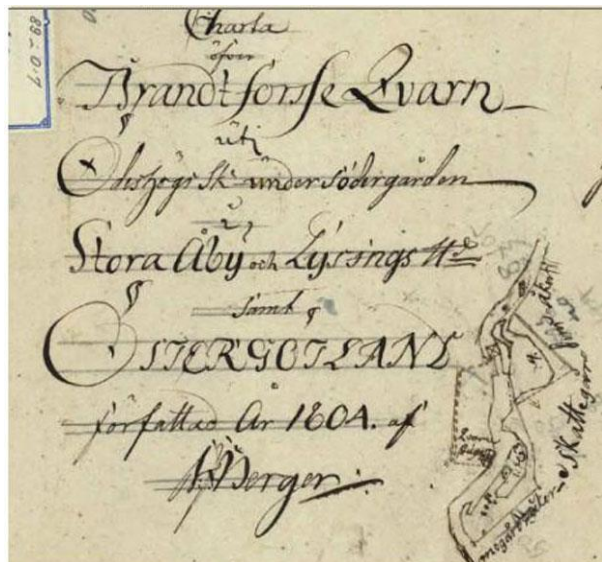 Charta
öfver
Brandtforsse Qvarn
uti
Ödeshögs Sk under Södergården
i
Stora Åby och Lysings Hd
samt
ÖSTERGÖTLAND
författad År 1804. af
Berger
Skattegår
89-0-7